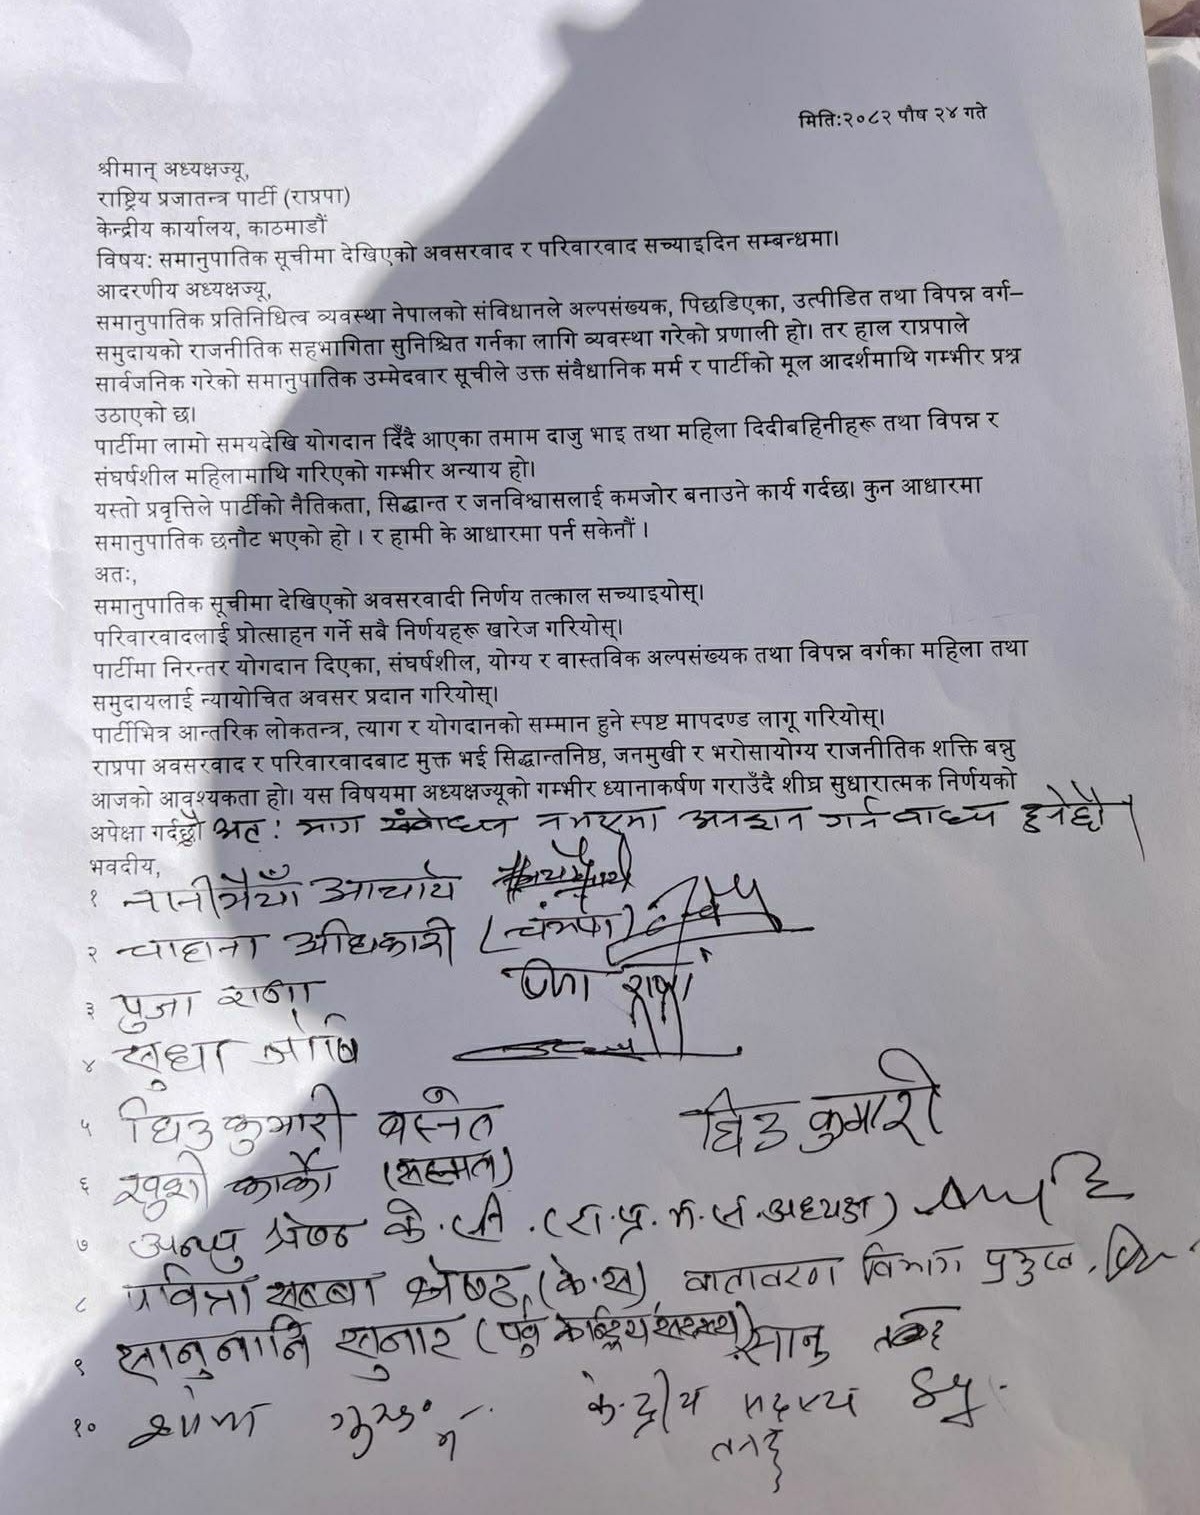 मिति:२०८२ पौष २४ गते
श्रीमान् अध्यक्षज्यू,
राष्ट्रिय प्रजातन्त्र पार्टी (राप्रपा)
केन्द्रीय कार्यालय, काठमाडौं
विषय: समानुपातिक सूचीमा देखिएको अवसरवाद र परिवारवाद सच्याइदिन सम्बन्धमा।
आदरणीय अध्यक्षज्यू,
समानुपातिक प्रतिनिधित्व व्यवस्था नेपालको संविधानले अल्पसंख्यक, पिछडिएका, उत्पीडित तथा विपन्न वर्ग–
समुदायको राजनीतिक सहभागिता सुनिश्चित गर्नका लागि व्यवस्था गरेको प्रणाली हो। तर हाल राप्रपाले
सार्वजनिक गरेको समानुपातिक उम्मेदवार सूचीले उक्त संवैधानिक मर्म र पार्टीको मूल आदर्शमाथि गम्भीर प्रश्न
उठाएको छ।
पार्टीमा लामो समयदेखि योगदान दिँदै आएका तमाम दाजु भाइ तथा महिला दिदीबहिनीहरू तथा विपन्न र
संघर्षशील महिलामाथि गरिएको गम्भीर अन्याय हो।
यस्तो प्रवृत्तिले पार्टीको नैतिकता, सिद्धान्त र जनविश्वासलाई कमजोर बनाउने कार्य गर्दछ। कुन आधारमा
समानुपातिक छनौट भएको हो । र हामी के आधारमा पर्न सकेनौं ।
अतः,
समानुपातिक सूचीमा देखिएको अवसरवादी निर्णय तत्काल सच्याइयोस्।
परिवारवादलाई प्रोत्साहन गर्ने सबै निर्णयहरू खारेज गरियोस्।
पार्टीमा निरन्तर योगदान दिएका, संघर्षशील, योग्य र वास्तविक अल्पसंख्यक तथा विपन्न वर्गका महिला तथा
समुदायलाई न्यायोचित अवसर प्रदान गरियोस्।
पार्टीभित्र आन्तरिक लोकतन्त्र, त्याग र योगदानको सम्मान हुने स्पष्ट मापदण्ड लागू गरियोस्।
राप्रपा अवसरवाद र परिवारवादबाट मुक्त भई सिद्धान्तनिष्ठ, जनमुखी र भरोसायोग्य राजनीतिक शक्ति बन्नु
आजको आवश्यकता हो। यस विषयमा अध्यक्षज्यूको गम्भीर ध्यानाकर्षण गराउँदै शीघ्र सुधारात्मक निर्णयको
अपेक्षा गर्दछौं अत: माग संबोधन नभएमा अनशन गर्न वाध्य हुनेछौ।
भवदीय,
१ नानीमैयाँ आचार्य
२ चाहाना अधिकारी (चंम्पा)
३ पुजा राना पुजा राना
४ सुधा जोषि
५ घिउकुमारी बस्नेत घिउकुमारी
६ खुशी कार्की (सहमत)
७ श्रेष्ठ के.सी. (रा.प्र.म.सं.अध्यक्ष)
८ पवित्रा श्रेष्ठ (के.स) वातावरण विभाग प्रमुख
९ सानुनानि सुनार (पुर्व केन्द्रिय सदस्य) सानु
१० गुरुङ केन्द्रीय सदस्य